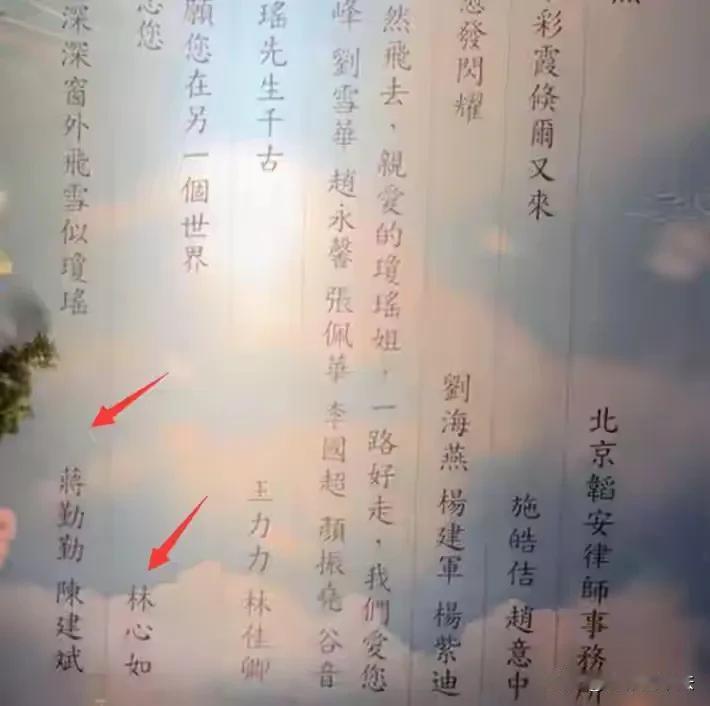 北京韜安律師事務所
彩霞倏爾又來 施皓佶 趙意中
發閃耀 劉海燕 楊建軍 楊紫迪
然飛去，親愛的瓊瑤姐，一路好走，我們愛您
峰 劉雪華 趙永馨 張佩華 李國超 顏振堯 谷音
瑤先生千古 王力力 林佳卿
願您在另一個世界
您 林心如
深深窗外飛雪似瓊瑤 蔣勤勤 陳建斌